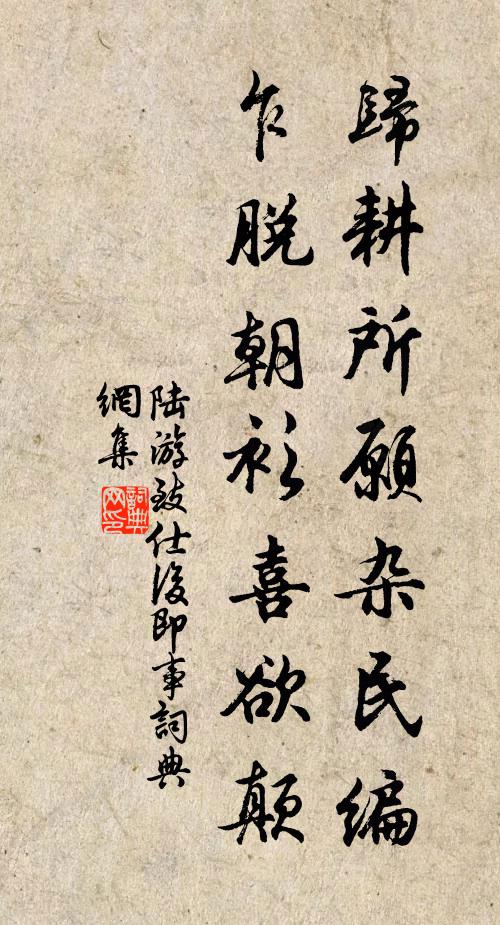 歸耕所願杂民编
乍脱朝衫喜欲颠
陆游致仕後即事詞典
網集
詞典
网印